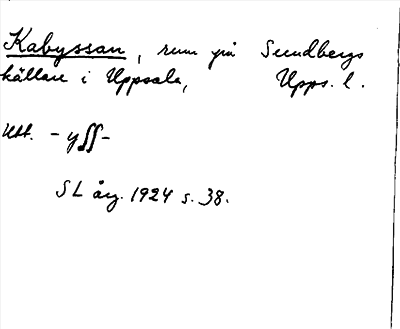 Kabyssan, rum på Sundbergs
källare i Uppsala, Upps. l.
Utt. - yʃʃ-
SL årg. 1924 s. 38.